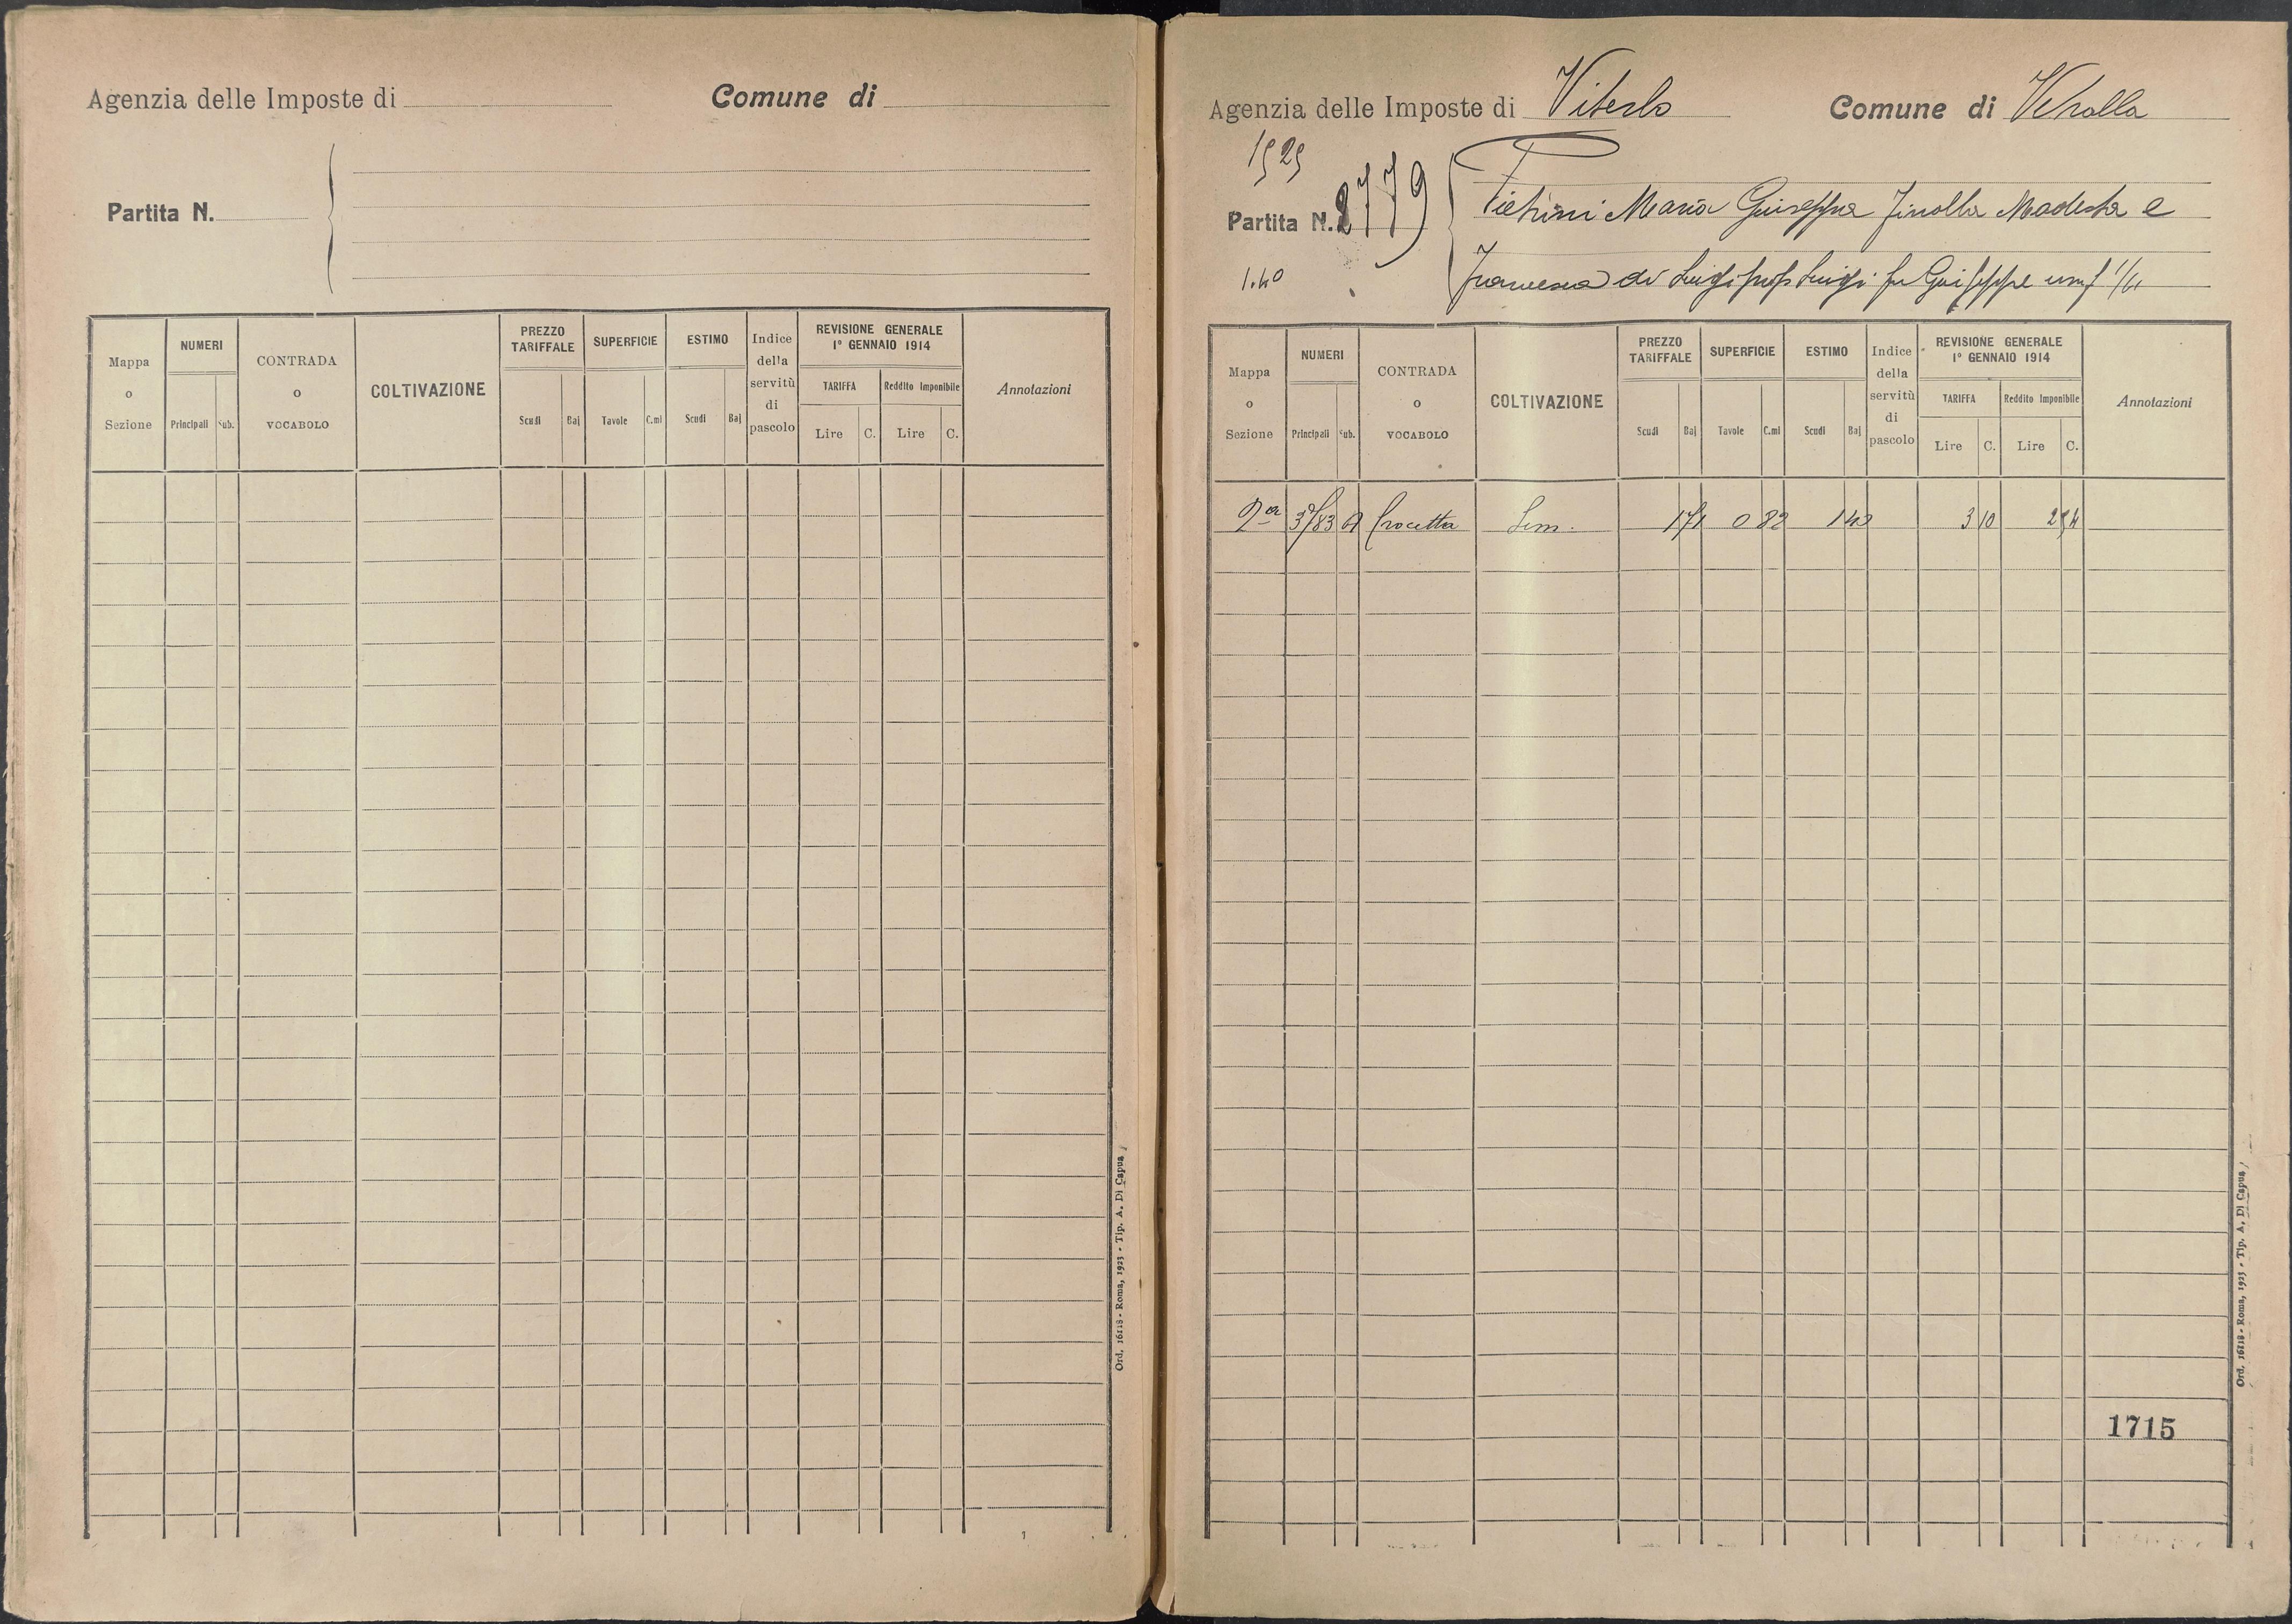 Agenzia delle Imposte di Comune di
Partita N.
Mappa o Sezione NUMERI Principali Sub. CONTRADA o VOCABOLO COLTIVAZIONE PREZZO TARIFFALE Scudi Baj SUPERFICIE Tavole C.mi ESTIMO Scudi Baj Indice della servitù di pascolo REVISIONE GENERALE 1° GENNAIO 1914 TARIFFA Lire C. Reddito Imponibile Lire C. Annotazioni
Ord. 16118 - Roma, 1923 - Tip. A. Di Capua
Agenzia delle Imposte di Viterbo Comune di Vetralla
1929
Partita N. 2779
Pietrini Maria Giuseppa Modesta e
1.40
Francesca di Luigi prop Luigi fu Giuseppe usuf
Mappa o Sezione NUMERI Principali Sub. CONTRADA o VOCABOLO COLTIVAZIONE PREZZO TARIFFALE Scudi Baj SUPERFICIE Tavole C.mi ESTIMO Scudi Baj Indice della servitù di pascolo REVISIONE GENERALE 1° GENNAIO 1914 TARIFFA Lire C. Reddito Imponibile Lire C. Annotazioni
Crocetta Sem. 1 71 0 82 1 40 3 10 2 54
1715
Ord. 16118 - Roma, 1923 - Tip. A. Di Capua